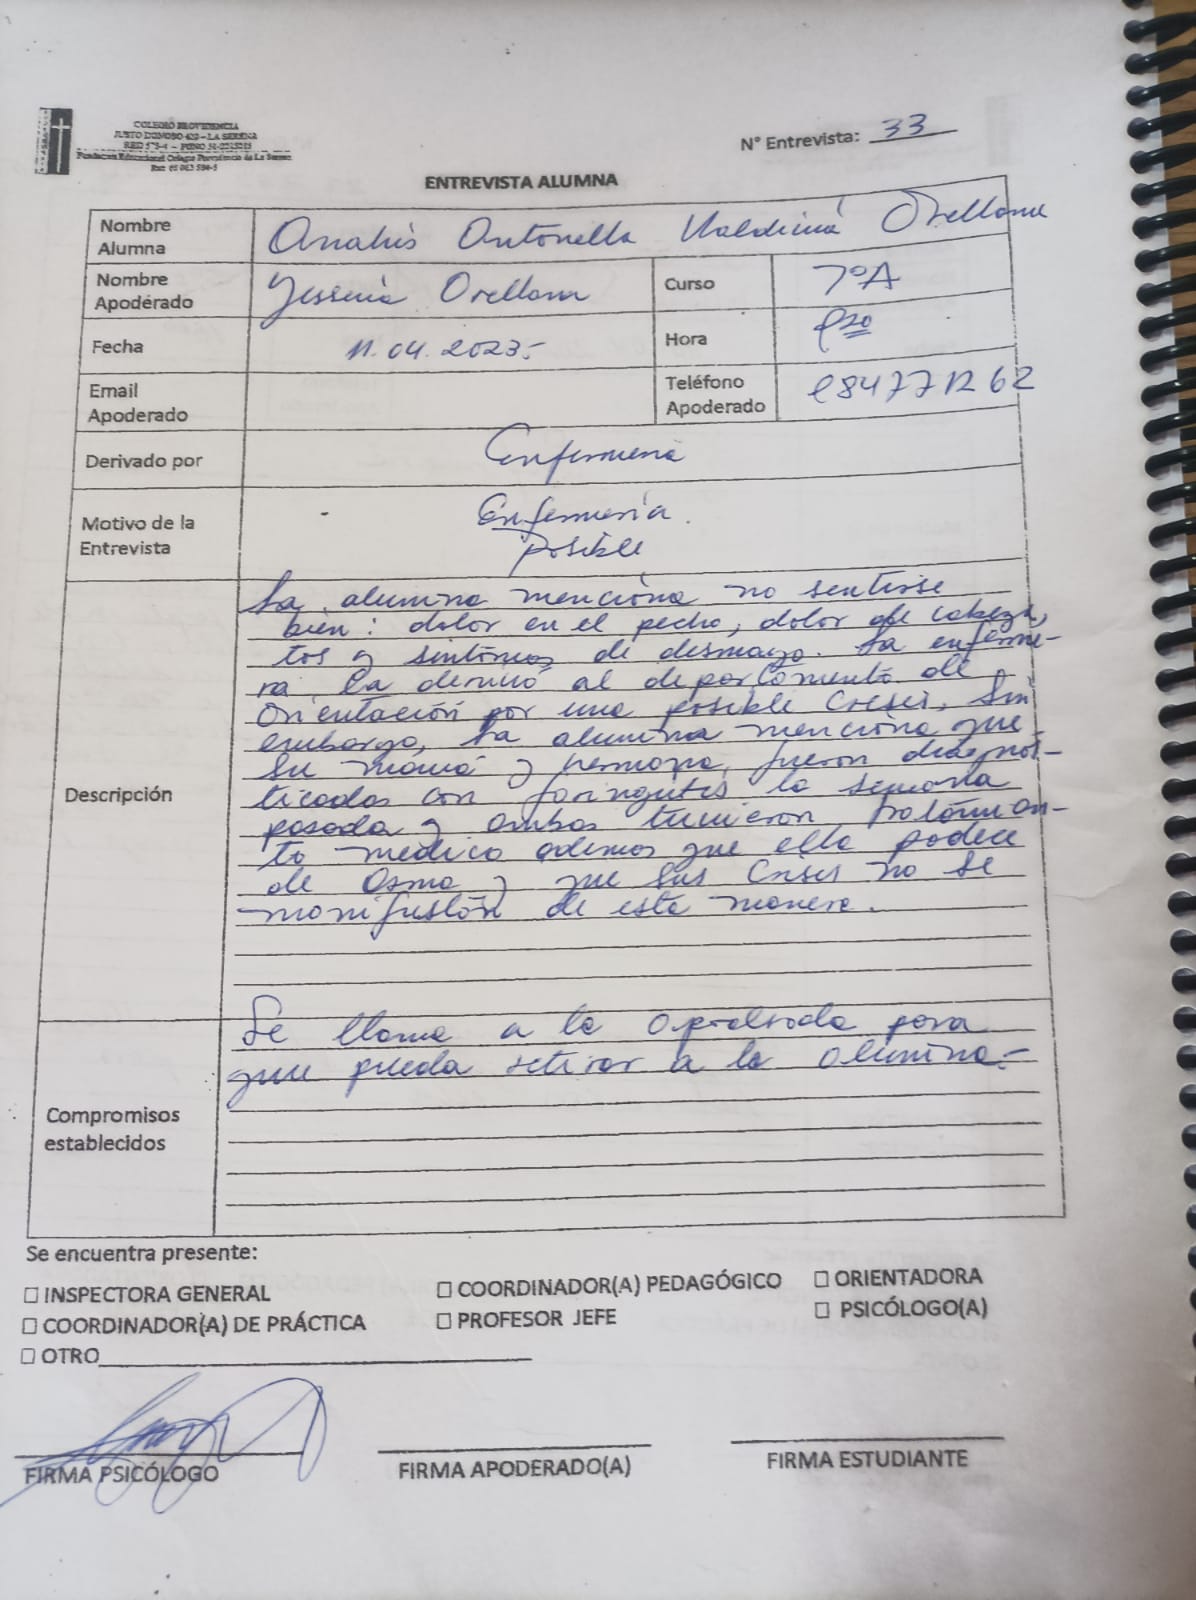 COLEGIO PROVIDENCIA
JUSTO DONOSO 420 – LA SERENA
Fundación Educacional Colegio Providencia de La Serena
N° Entrevista: 33
ENTREVISTA ALUMNA
Nombre Alumna Anahis Antonella Orellana
Nombre Apoderado Yessenia Orellana Curso 7°A
Fecha 11.04.2023.- Hora
Email Apoderado Teléfono Apoderado
Derivado por Enfermería
Motivo de la Entrevista Enfermería.
posible
Descripción
La alumna menciona no sentirse
bien: dolor en el pecho, dolor de cabeza,
tos y síntomas de desmayo. La enferme-
ra la derivó al departamento de
Orientación por una posible Crisis, Sin
embargo, La alumna menciona que
Su mamá y hermana, fueron diagnos-
ticadas con faringitis la semana
pasada y ambas tuvieron tratamien-
to médico además que ella padece
de Asma y que sus Crisis no se
manifiestan de esta manera.
Compromisos establecidos
Se llama a la apoderada para
que pueda retirar a la alumna.-
Se encuentra presente:
☐ INSPECTORA GENERAL ☐ COORDINADOR(A) PEDAGÓGICO ☐ ORIENTADORA
☐ COORDINADOR(A) DE PRÁCTICA ☐ PROFESOR JEFE ☐ PSICÓLOGO(A)
☐ OTRO
FIRMA PSICÓLOGO FIRMA APODERADO(A) FIRMA ESTUDIANTE